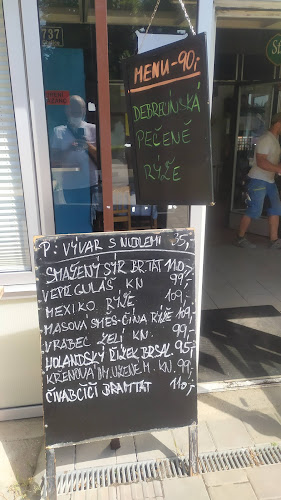 737
MENU-90,-
DEBRECÍNSKÁ
PEČENĚ
RÝŽE
P: VÝVAR S NUDLEMI 35,-
SMAŽENÝ SÝR BR.TAT 110,-
VEPŘ GULÁŠ KN 99,-
MEXIKO. RÝŽE 109,-
MASOVÁ SMĚS-ČÍNA RÝŽE 109,-
VRABEC ZELÍ KN. 99,-
HOLANDSKÝ ŘÍZEK BR.SAL. 95,-
KŘENOVÁ OM. UZENÉ M. KN. 99,-
ČIVABČIČI BRAMTAT 110,-